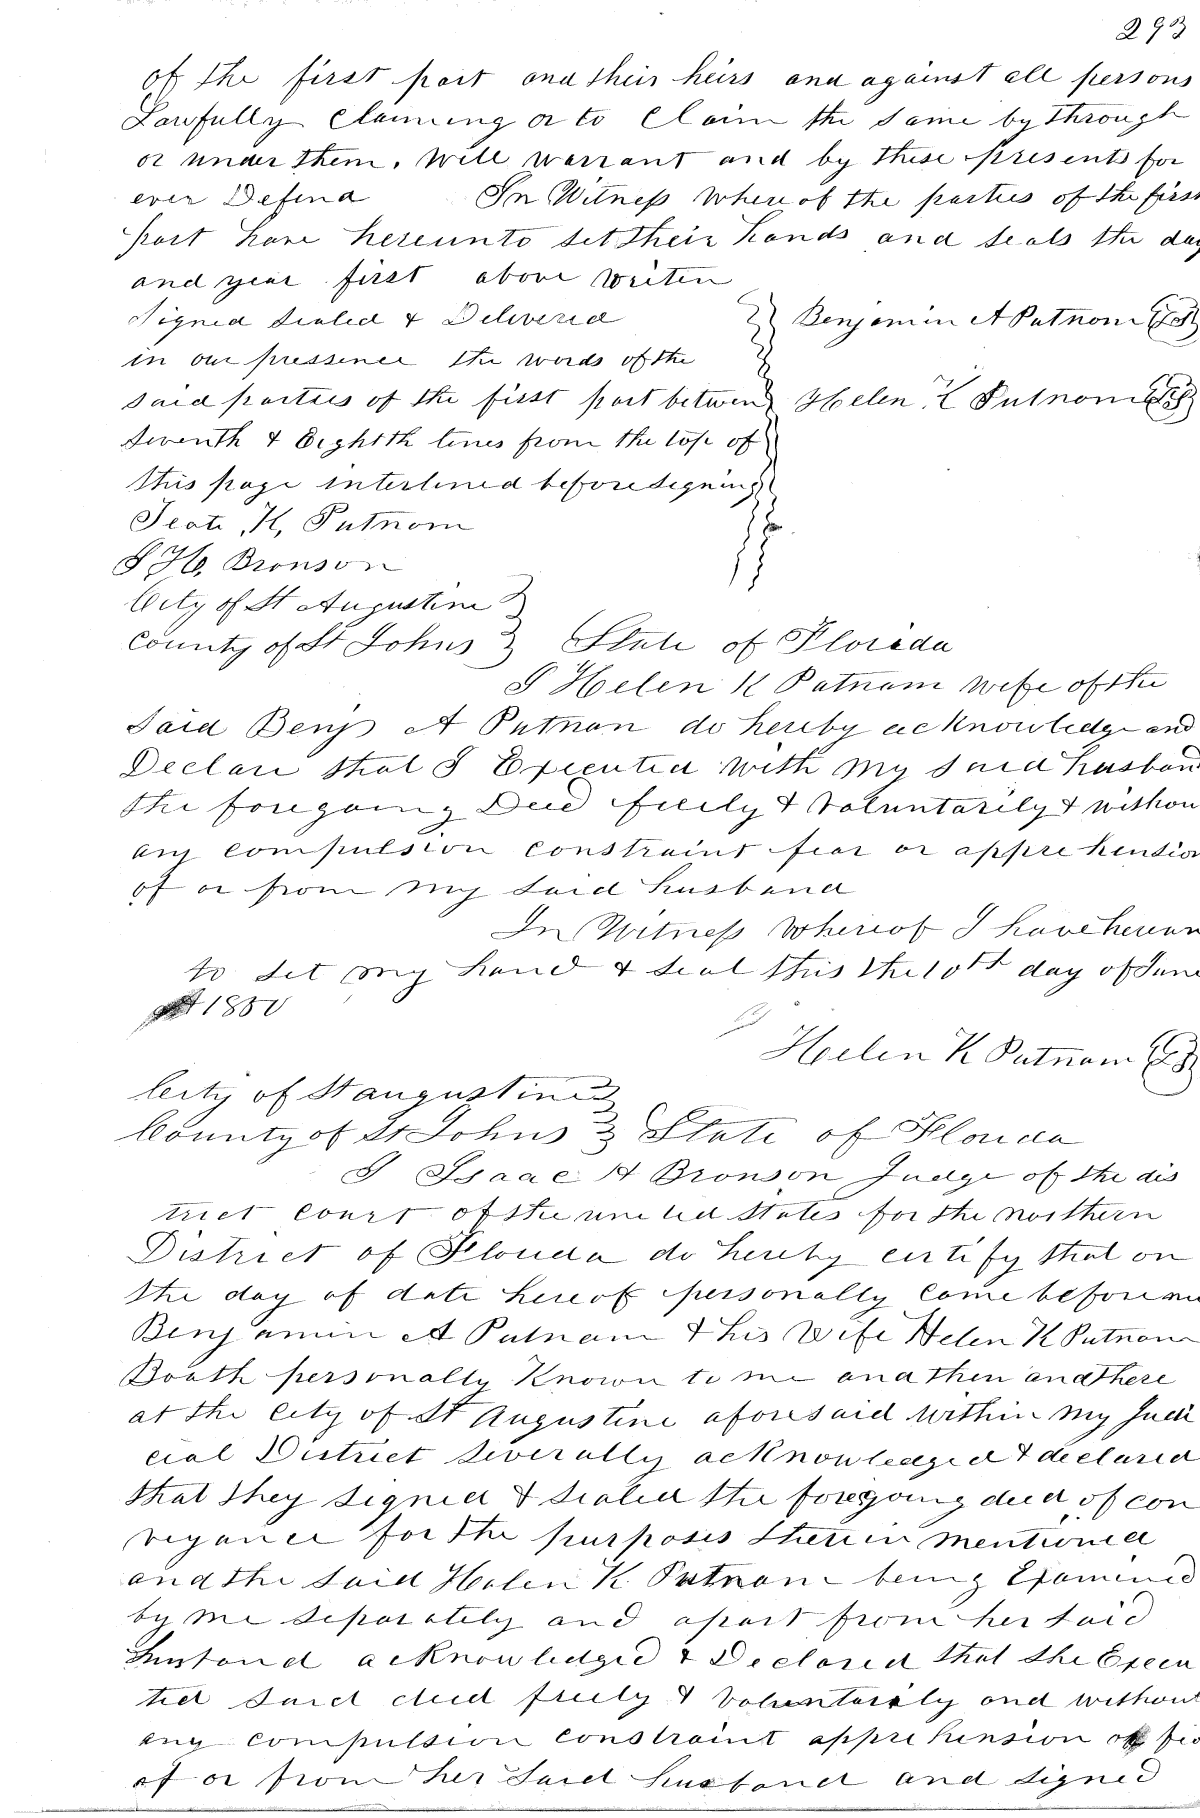 293
of the first part and their heirs and against all persons
Lawfully Claiming or to Claim the same by through
or under them. Will warrant and by these presents for
ever Defend In Witness Where of the parties of the first
part have hereunto set their hands and seals the day
and year first above writen
Signed Sealed & Delivered
in our pressence the words of the
said parties of the first part betwen
Seventh & Eighth lines from the top of
this page interlined before signing
Benjamin A Putnam LS
Helen K Putnam LS
K, Putnam
I H, Bronson
City of St Augustine
County of St Johns State of Florida
I Helen K Putnam wife of the
Said Benj A Putnan do hereby acknowledge and
Declare that I Executed with my said husband
the foregoing Deed freely & Voluntarily & withou
any compulsion constraint fear or apprehension
of or from my said husband
In Witness Whereof I have hereun
to set my hand & seal this the 10th day of June
1850
Helen K Putnam LS
City of St augustine
County of St Johns State of Florida
I Isaac H Bronson Judge of the dis
trict court of the united states for the northern
District of Florida do hereby certify that on
the day of date hereof personally came before me
Benjamin A Putnam & his Wife Helen K Putnam
Boath personally Known to me and then and there
at the City of St Augustine aforesaid within my Judi
cial District severally acknowledged & declared
that they signed & sealed the foregoing deed of con
veyance for the purposes therein mentioned
and the said Helen K Putnam being Examined
by me separately and apart from her said
husband acknowledged & Declared that she Execu
ted said deed freely & Voluntarily and without
any compulsion constraint apprehension or
of or from her said husband and signed